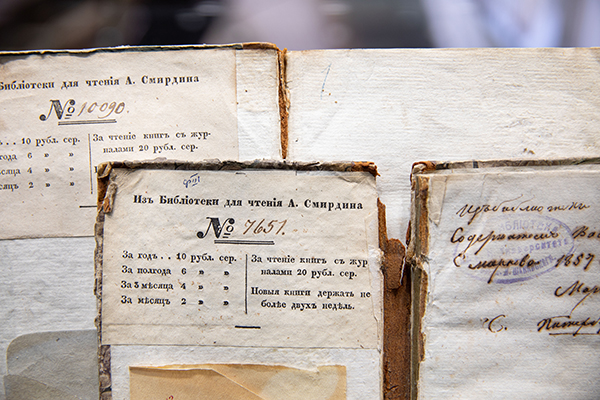 Библіотеки для чтенія А. Смирдина
№ 10090.
10 рубл. сер.
года 6 „ „
мѣсяца 4 „ „
мѣсяцъ 2 „ „
За чтеніе книгъ съ жур-
налами 20 рубл. сер.
Изъ Библіотеки для чтенія А. Смирдина
№ 7651.
За годъ.. 10 рубл. сер.
За полгода 6 „ „
За 3 мѣсяца 4 „ „
За мѣсяцъ 2 „ „
За чтеніе книгъ съ жур-
налами 20 рубл. сер.
Новыя книги держать не
болѣе двухъ недѣль.
Изъ библіотеки
Содержателя
С марта 1857
С.